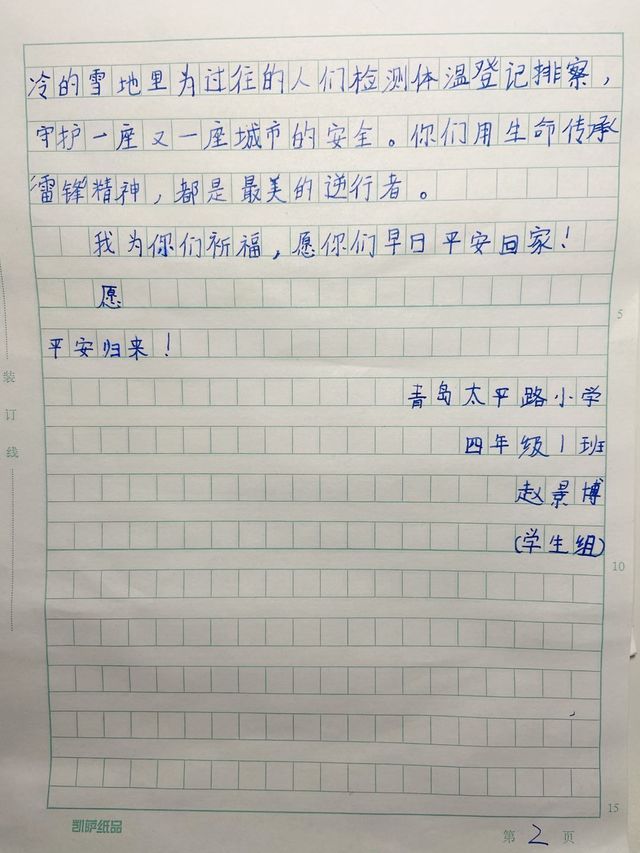 冷的雪地里为过往的人们检测体温登记排察，
守护一座又一座城市的安全。你们用生命传承
雷锋精神，都是最美的逆行者。
我为你们祈福，愿你们早日平安回家！
愿
5
平安归来！
装
订
线
青岛太平路小学
四年级1班
赵景博
(学生组)
10
15
凯萨纸品
第2页